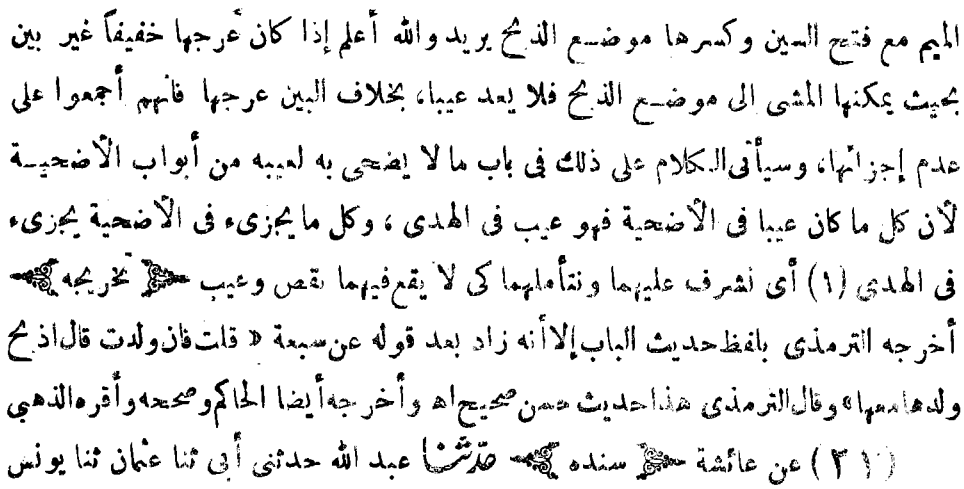 الميم مع فتح السين وكسرها موضع الذبح يريد والله أعلم إذا كان عرجها خفيفاً غير بين
بحيث يمكنها المشى الى موضع الذبح فلا يعد عيبا، بخلاف البين عرجها فانهم أجمعوا على
عدم إجزائها، وسيأتى الكلام على ذلك فى باب ما لا يضحى به لعيبه من أبواب الأضحية
لأن كل ما كان عيبا فى الأضحية فهو عيب فى الهدى ، وكل ما يجزىء فى الأضحية يجزىء
فى الهدى (١) أى نشرف عليهما ونتأملهما كى لا يقع فيهما نقص وعيب ﴿ تخريجه ﴾
أخرجه الترمذى بلفظ حديث الباب إلا أنه زاد بعد قوله عن سبعة « قلت فان ولدت قال اذبح
ولدها معها» وقال الترمذى هذا حديث حسن صحيح اهـ وأخرجه أيضا الحاكم وصححه وأقره الذهبي
(٣١) عن عائشة ﴿ سنده ﴾ حدثنا عبد الله حدثنى أبى ثنا عثمان ثنا يونس